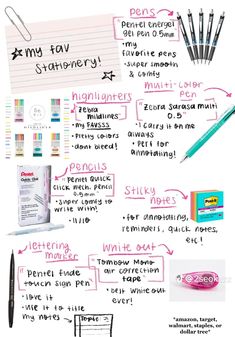 my fav
stationery!
pens
"Pentel energel
gel pen 0.5mm"
• my
favorite pens
• super smooth
& comfy
highlighters
"Zebra
midlines"
• my FAVSSS
• Pretty colors
• dont bleed!
multi-color
pen
"Zebra Sarasa multi
0.5"
• I carry it on me
always
• Perf for
annotating!
pencils
Pentel
"Pentel Quick
click mech. pencil
0.5mm"
• super comfy to
write with!
• 11/10
sticky
notes
Post-it
• for annotating,
reminders, quick notes,
etc!
lettering
marker
"Pentel fude
touch sign pen"
• love it
• use it to title
my notes
Topic:
White out
"Tombow Mono
air correction
tape"
• best white out
ever!
"amazon, target,
walmart, staples, or
dollar tree"